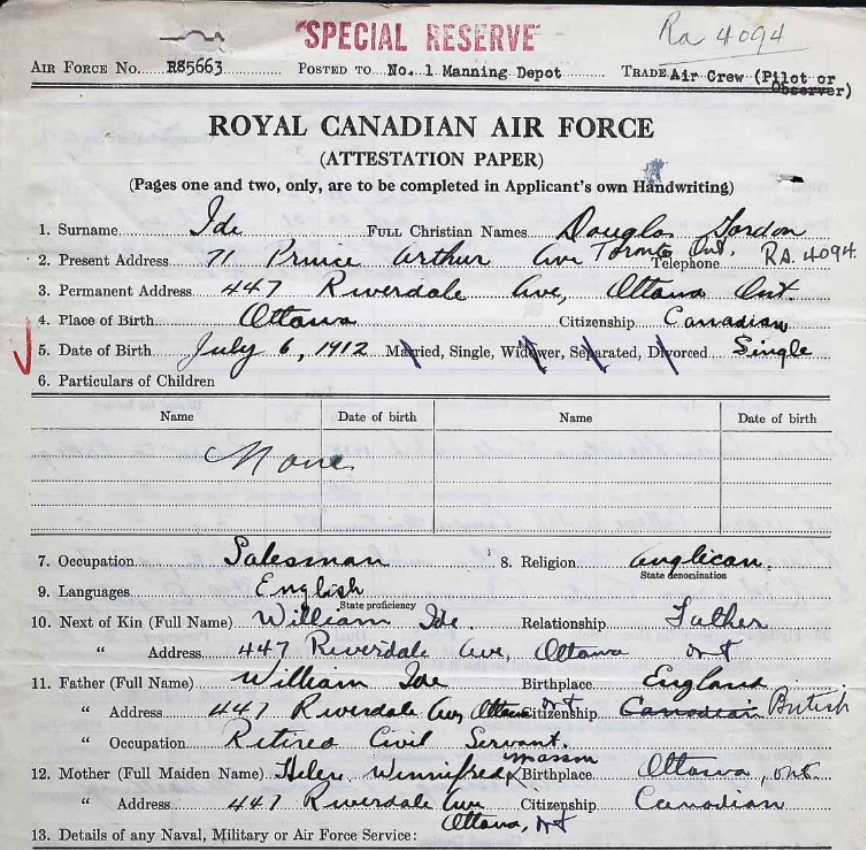 "SPECIAL RESERVE" Ra 4094
AIR FORCE NO. R85663 POSTED TO No. 1 Manning Depot TRADE Air Crew (Pilot or
Observer)
ROYAL CANADIAN AIR FORCE
(ATTESTATION PAPER)
(Pages one and two, only, are to be completed in Applicant's own Handwriting)
1. Surname Ide FULL CHRISTIAN NAMES Douglas Gordon
2. Present Address 71 Prince Arthur Ave Toronto Ont. Telephone RA. 4094.
3. Permanent Address 447 Riverdale Ave, Ottawa Ont.
4. Place of Birth Ottawa Citizenship Canadian
5. Date of Birth July 6, 1912 Married, Single, Widower, Separated, Divorced Single
6. Particulars of Children
Name Date of birth Name Date of birth
None
7. Occupation Salesman 8. Religion Anglican.
State denomination
9. Languages English
State proficiency
10. Next of Kin (Full Name) William Ide. Relationship Father
" Address 447 Riverdale Ave, Ottawa Ont
11. Father (Full Name) William Ide Birthplace England
" Address 447 Riverdale Ave Ottawa Ont Citizenship Canadian British
" Occupation Retired Civil Servant.
12. Mother (Full Maiden Name) Helen Winnifred Masson Birthplace Ottawa, Ont.
" Address 447 Riverdale Ave Citizenship Canadian
Ottawa, Ont
13. Details of any Naval, Military or Air Force Service: